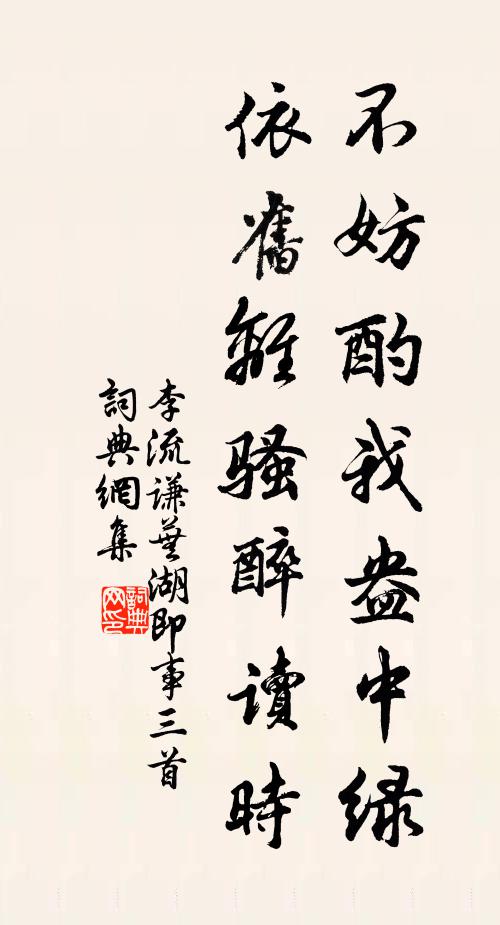 不妨酌我盎中緑
依舊離騷醉讀時
李流謙蕪湖即事三首
詞典網集
詞典
网印